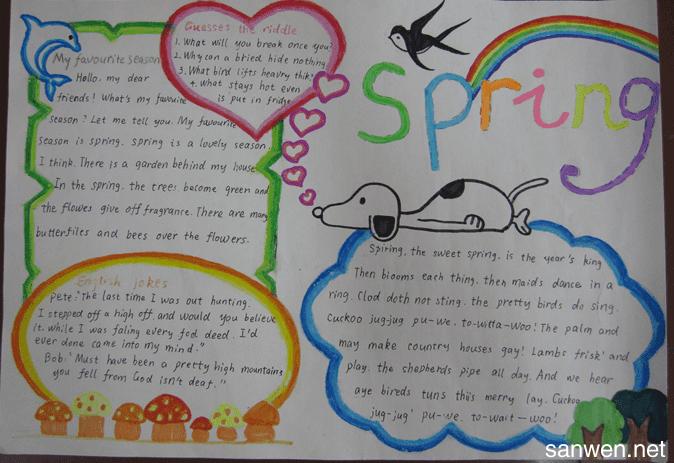 Guesses the riddle
1. What will you break once you?
2. Why can a bried hide nothing
3. What bird lifts heavry thik?
4. What stays hot even
is put in fridge
My favourite season
Hello, my dear
friends! What's my favuite
season? Let me tell you. My favourite
season is spring. spring is a lovely season.
I think. There is a garden behind my house
In the spring. the trees become green and
the flowes give off fragrance. There are many
butterfiles and bees over the flowers.
Spring
English jokes
Pete: "The last time I was out hunting.
I stepped off a high off. and would you believe
it. while I was faling every fod deed. I'd
ever done came into my mind."
Bob: 'Must have been a pretty high mountains
you fell from God isn't deaf."
Spiring, the sweet spring. is the year's king
Then biooms each thing. then maids dance in a
ring. Clod doth not sting. the pretty birds do sing.
Cuckoo jug-jug pu-we. to-witta-woo! The palm and
may make country houses gay! Lambs frisk' and
play. the shepherds pipe all day. And we hear
aye bireds tuns this merry lay. Cuckoo
jug-jug' pu-we. to-wait-woo!
sanwen.net